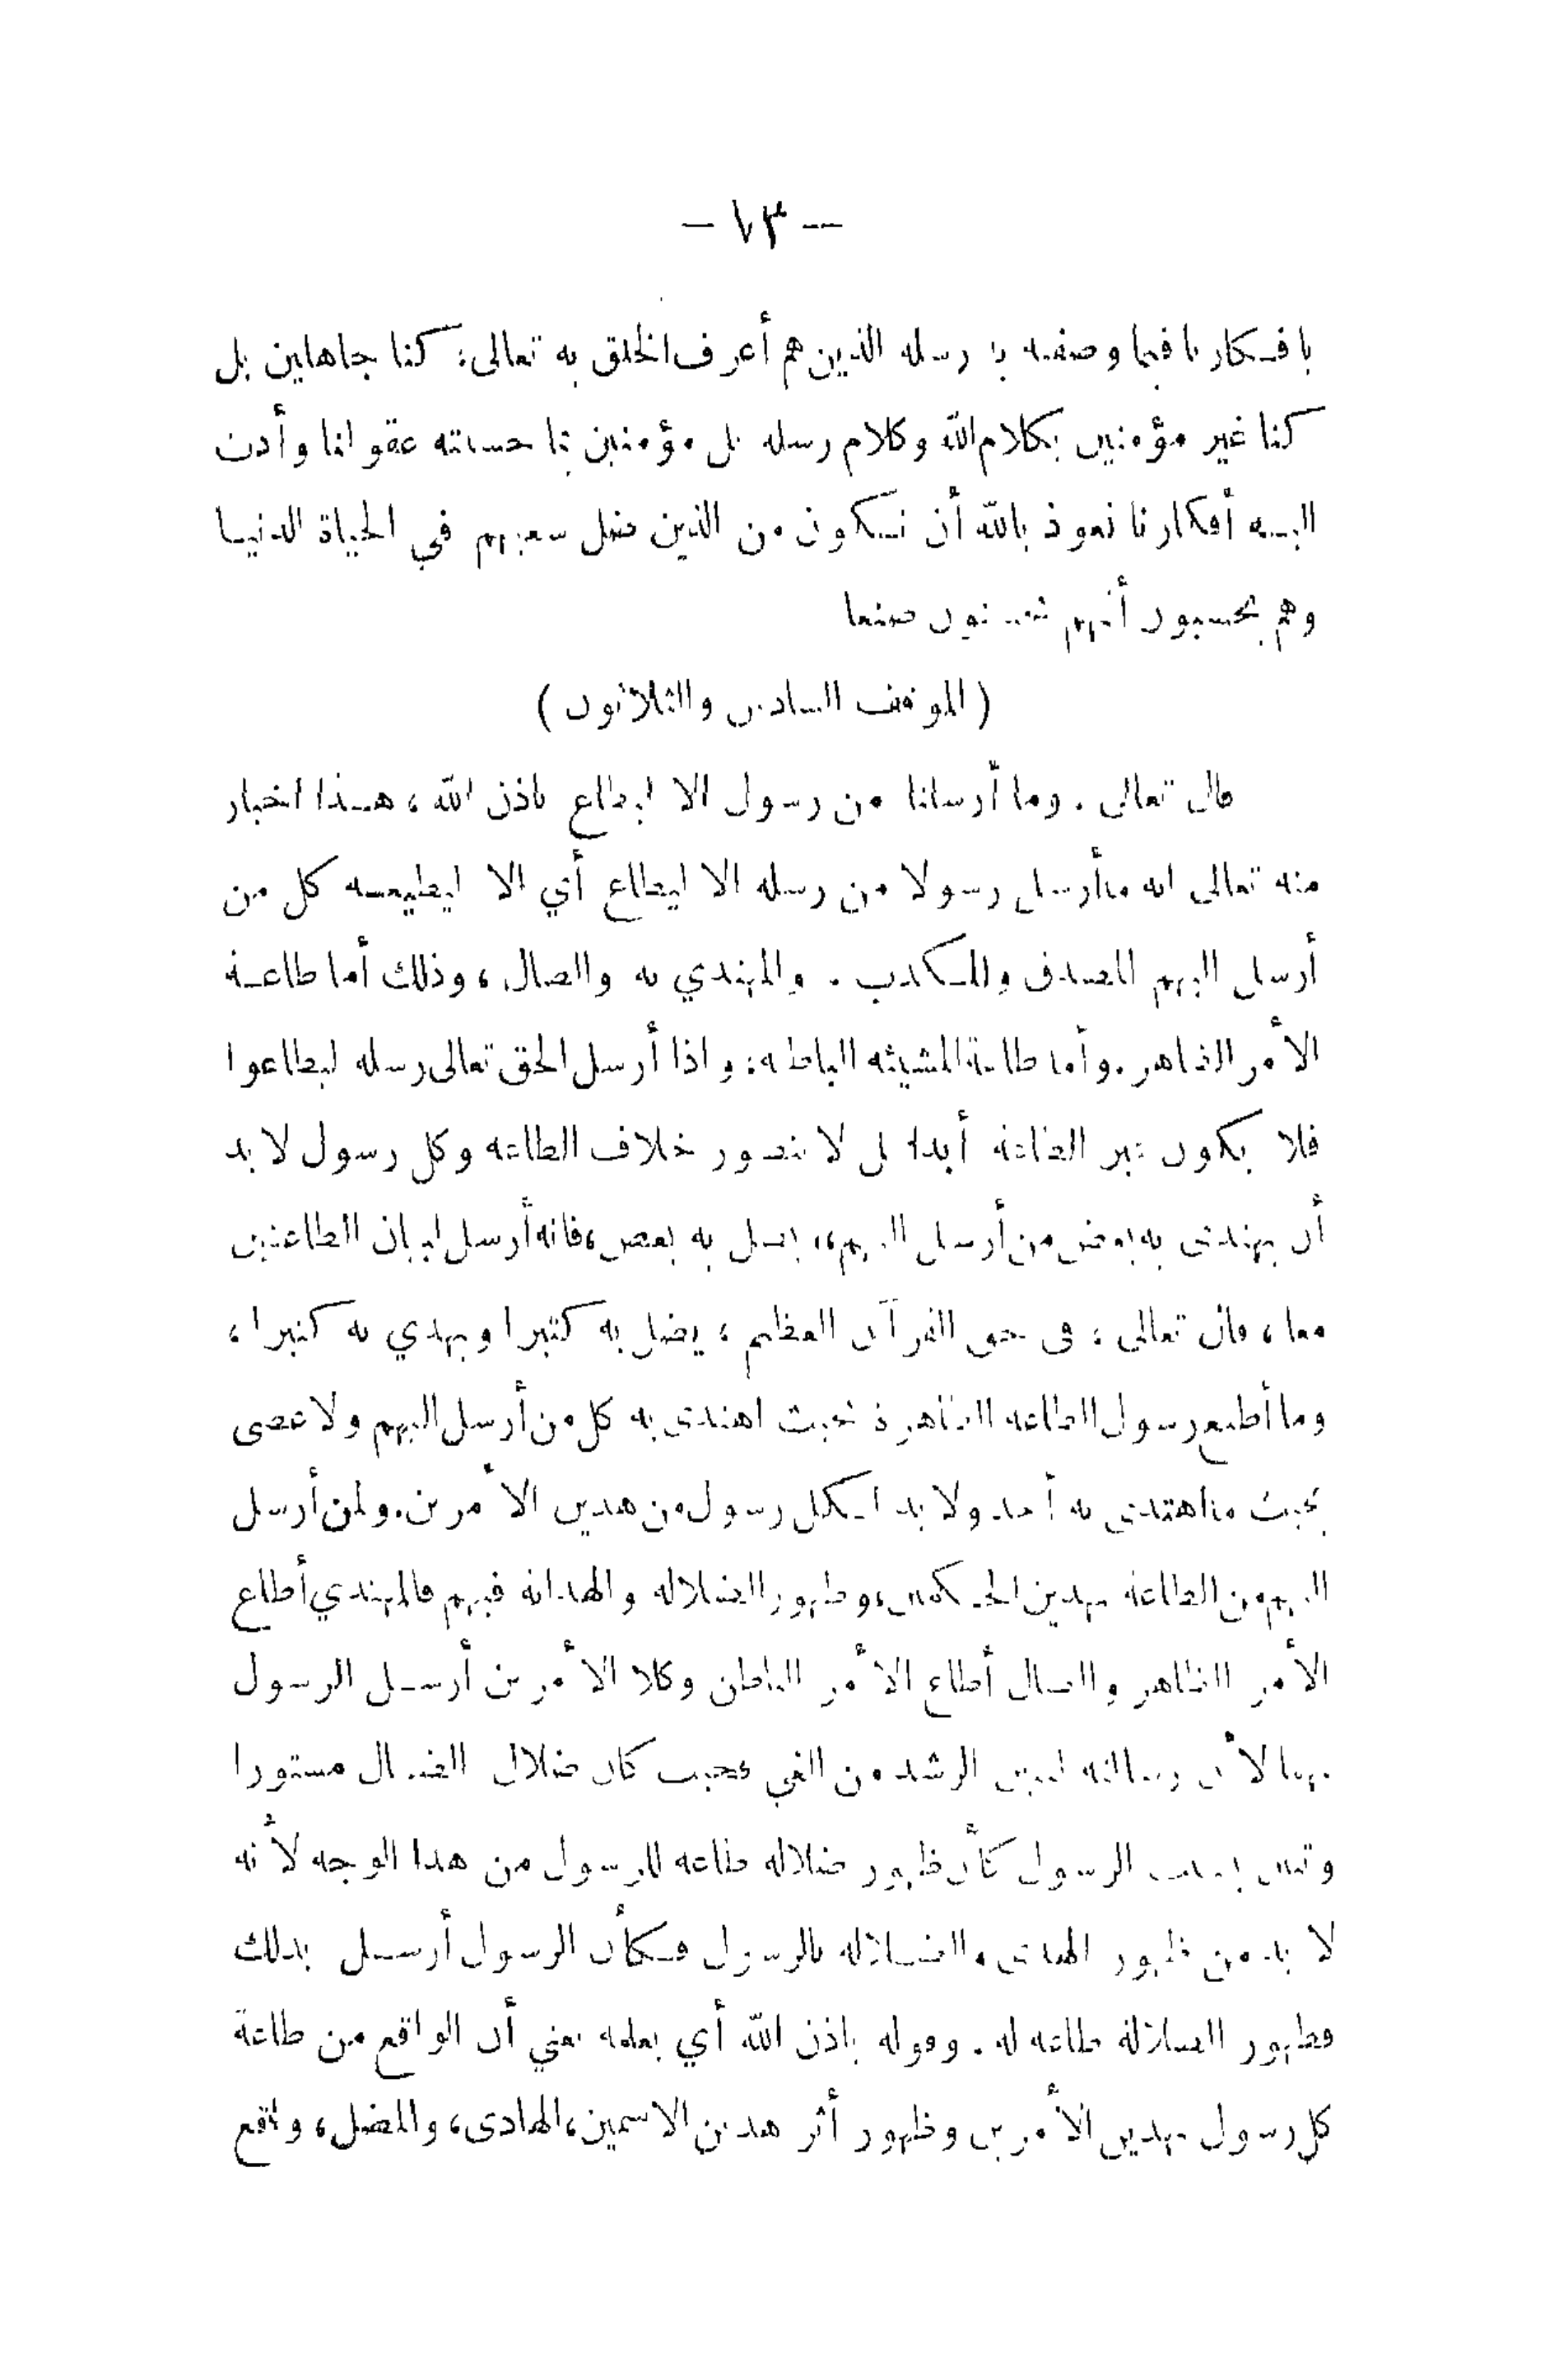 — ٧٣ —
بافكارنا فيما وصفه به رسله الذين هم أعرف الخلق به تعالى، كنا جاهلين بل
كنا غير مؤمنين بكلام الله وكلام رسله بل مؤمنين بما حسنته عقولنا وأدت
اليه أفكارنا نعوذ بالله أن نكون من الذين ضل سعيهم في الحياة الدنيا
وهم يحسبون أنهم يحسنون صنعا
( الموقف السادس والثلاثون )
قال تعالى . وما أرسلنا من رسول الا ليطاع باذن الله ، هذا اخبار
منه تعالى انه ما أرسل رسولا من رسله الا ليطاع أي الا ليطيعه كل من
أرسل اليهم المصدق والمكذب . والمهتدي به والضال ، وذلك أما طاعة
الأمر الظاهر . وأما طاعة المشيئة الباطنة ، واذا أرسل الحق تعالى رسله ليطاعوا
فلا يكون غير الطاعة أبدا بل لا يتصور خلاف الطاعة وكل رسول لا بد
أن يهتدى به بعض من أرسل اليهم ، ويضل به بعض ، فانه أرسل لبيان الطاعتين
معا ، قال تعالى ، في حق القرآن العظيم ، يضل به كثيرا ويهدي به كثيرا ،
وما أطيع رسول الطاعة الظاهرة بحيث اهتدى به كل من أرسل اليهم ولا عصى
بحيث ما اهتدى به أحد ولا بد لكل رسول من هذين الأمرين . ولمن أرسل
اليهم من الطاعة بهذين الحكمين ، وظهور الضلالة والهداية فيهم فالمهتدي أطاع
الأمر الظاهر والضال أطاع الأمر الباطن وكلا الأمرين أرسل الرسول
بهما لأن رسالته لتبيين الرشد من الغي فحيث كان ضلال الضال مستورا
وتبين بسبب الرسول كأن ظهور ضلاله طاعة للرسول من هذا الوجه لأنه
لا بد من ظهور الهدى والضلالة بالرسول فكأن الرسول أرسل بذلك
فظهور الضلالة طاعة له . وقوله باذن الله أي بعلمه يعني أن الواقع من طاعة
كل رسول بهذين الأمرين وظهور أثر هذين الاسمين ، الهادى ، والمضل ، واقع